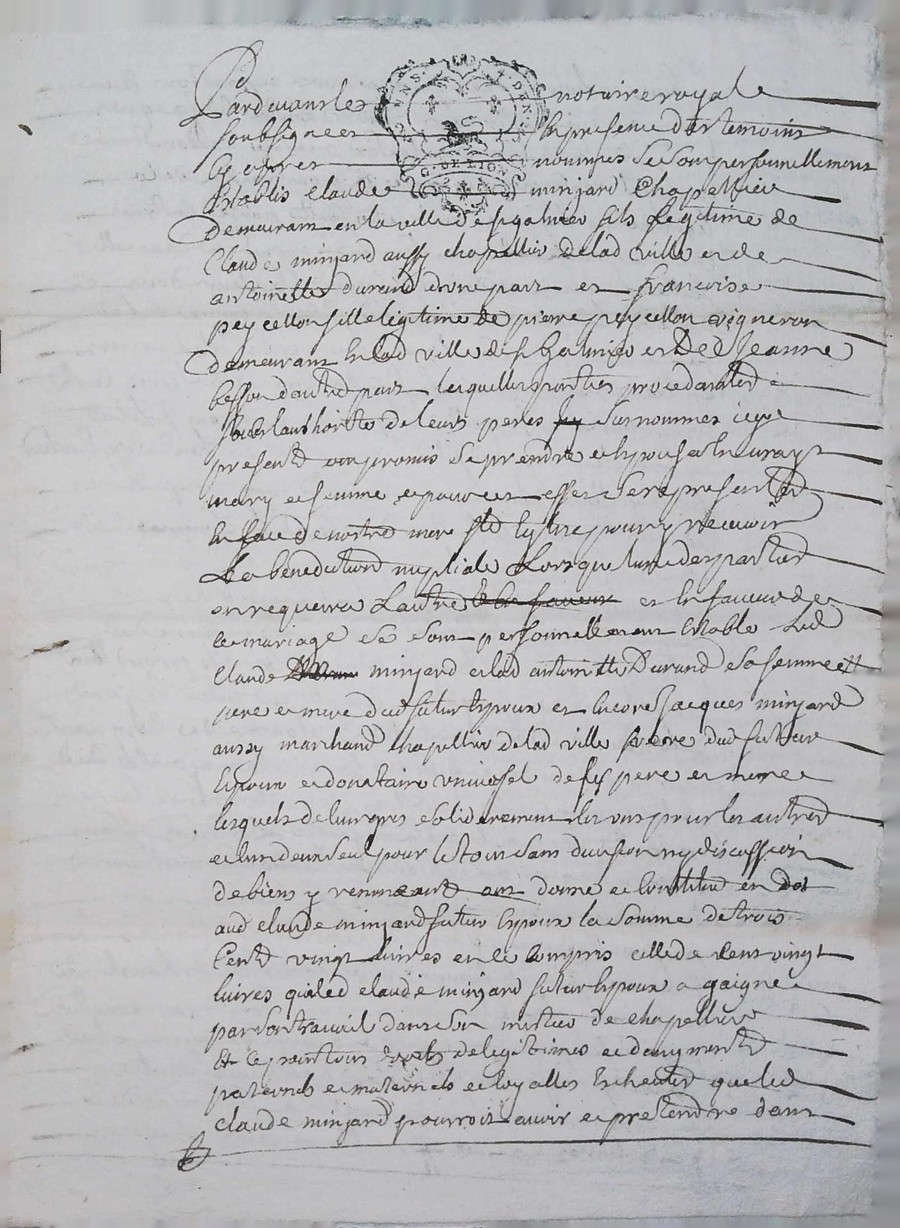 Pardevant le notaire royal
soubsigne et en presence des temoins
cy apres nommes se sont personnellement
establis Claude minjard Chapellier
demeurant en la ville de st galmier fils legitime de
Claude minjard aussy chapellier de lad ville et de
antoinette durand d'une part et francoise
peycellon fille legitime de pierre peycellon vigneron
demeurant en lad ville de st Galmier et de Jeanne
besson d'autre part lesquelles parties procedant de
l'authoritte de leurs peres surnommes icy
present ont promis se prendre et espouser en vrays
mary et femme et pour cet effet se representer
en face de nostre mere ste Eglise pour y recevoir
La benediction nuptiale Lorsque l'une des parties
en requerra L'autre et en faveur de
ce mariage se sont personnellement establis led
Claude minjard et lad antoinette Durand sa femme
pere et mere dud futur Epoux et encore Jacques minjard
aussy marchand chapellier de lad ville frere dud futur
Epoux et donataire universel de ses pere et mere
lesquels de leur gres solidairement les uns pour les autres
et l'un d'eux seul pour le tout sans division ny discussion
de biens y renoncant ont donne et constitue en dot
aud claude minjard futur Epoux la somme de trois
Cent vingt livres en ce compris celle de cent vingt
livres que led claude minjard futur Epoux a gaigne
par son travail dans son mestier de chapellier
Et ce pour tous droits de legitimes et d'augment
paternels et maternels et loyalles escheutes que led
claude minjard pourroit avoir et pretendre dans
G. DE LION